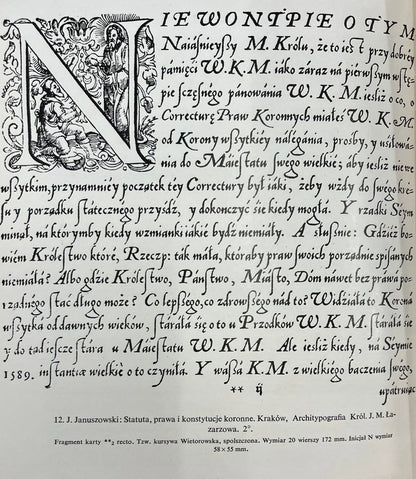 NIE WONTPIE O TYM
Naiáśnieyßy M. Krolu, że to iest przy dobrey
pámięći W. K. M. iáko záraz ná pierwßym wstę-
pie sczęsnégo pánowánia W. K. M. iesliż o co, o
Correcturę Praw Koronnych miáłeś W. K. M.
od Korony wßytkiéy nálégánia, prośby, y vśiłowá-
nia do Máiestatu swégo wielkié; áby iesliż nie we
wßytkim, przynamniéy początek téy Correctury był iáki, żeby wżdy do swégo kre-
su y porządku státecznégo przyśdź, y dokończyć się kiedy mogłá. Y rządki Séym
minął, ná którymby kiedy wzmiánki iákié bydź niemiáły. A słußnie: Gdzież bo-
wiém Królestwo które, Rzeczp: ták máła, któraby praw swoich porządnie spisánych
niemiáłá? Albo gdzie Królestwo, Páństwo, Miásto, Dóm náwet bez práwá po-
rządnégo stać długo może? Co lepßégo, co zdrowßégo nád to? Widziáłá to Koroná
wßytká od dawnych wieków, stáráłá się o to v Przodków W. K. M. stáráłá się
y do tąd ießcze stára v Máiestatu W. K. M. Ale iesliż kiedy, ná Séymie
1589. instantiæ wielkié o to czyniłá. Y wáßá K. M. z wielkiégo baczenia swégo,
** ij
vpátruiąc
12. J. Januszowski: Statuta, prawa i konstytucje koronne. Kraków, Architypografia Król. J. M. Ła-
zarzowa. 2°.
Fragment karty **₂ recto. Tzw. kursywa Wietorowska, spolszczona. Wymiar 20 wierszy 172 mm. Inicjał N wymiar
58 × 55 mm.